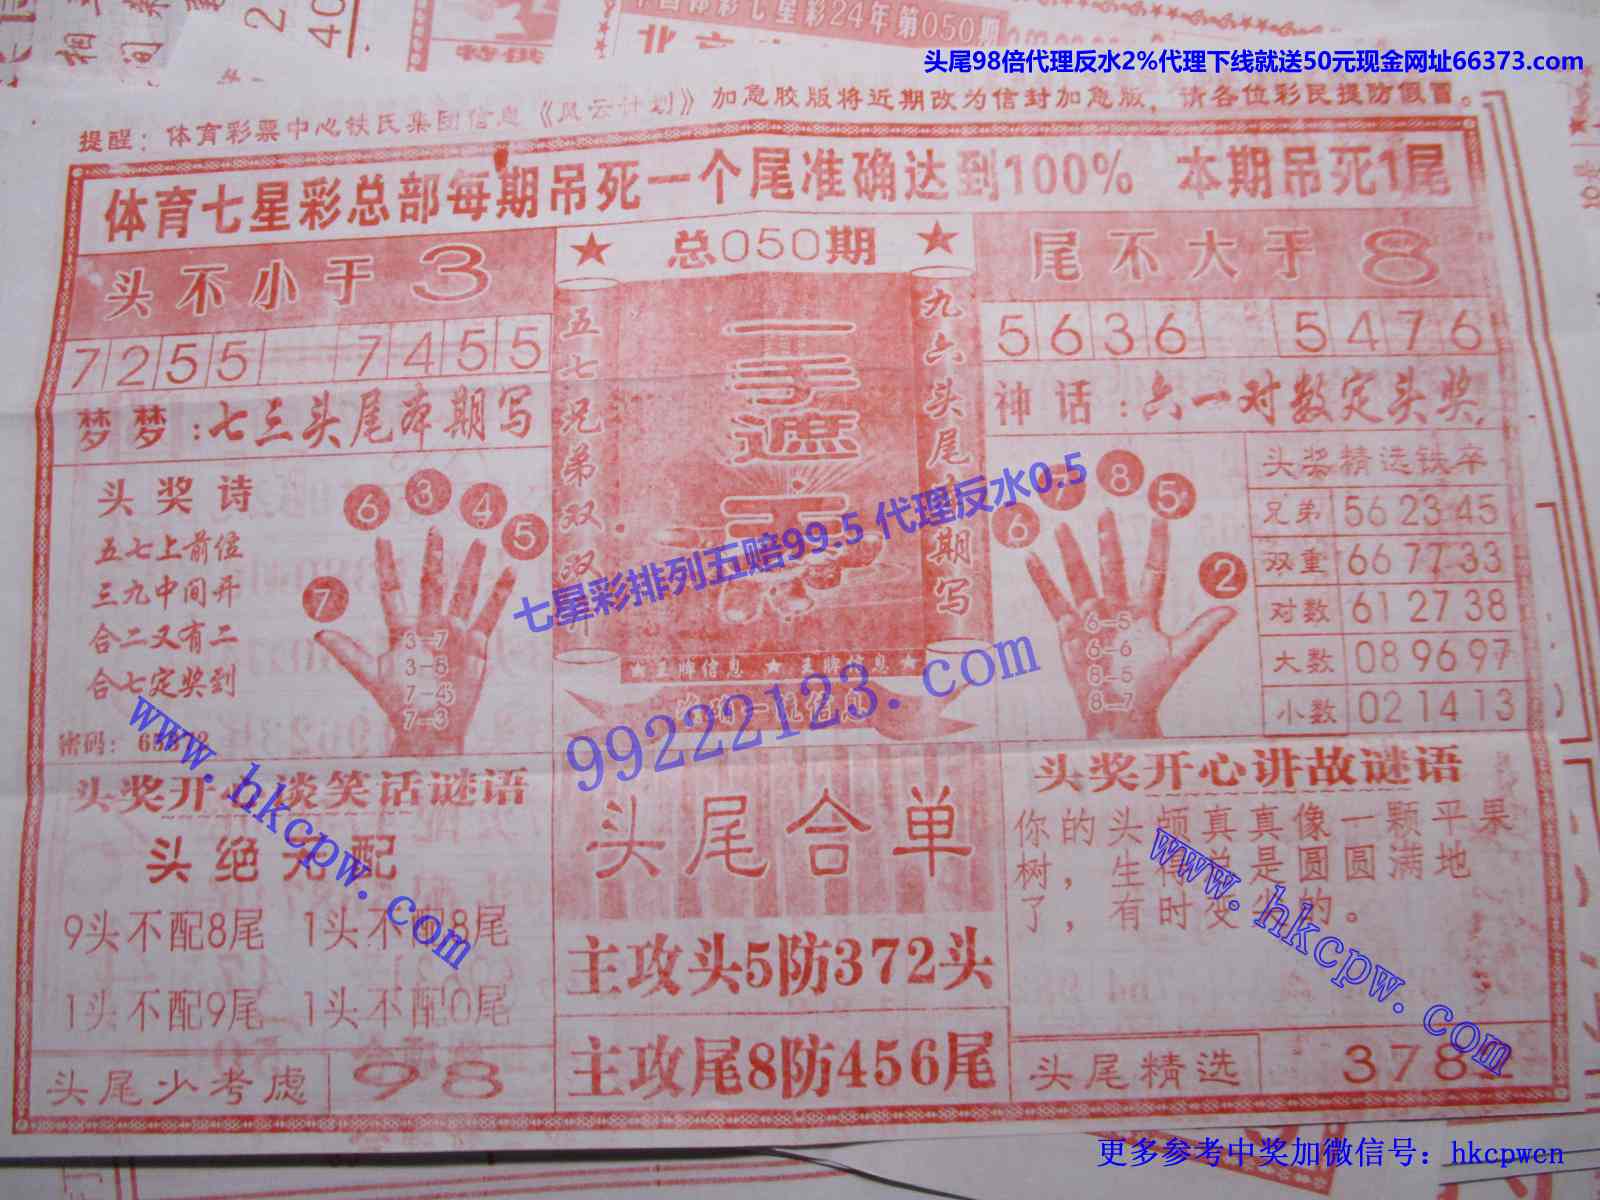 中国体彩七星彩24年第050期
头尾98倍代理反水2%代理下线就送50元现金网址66373.com
提醒：体育彩票中心铁氏集团信息《风云计划》加急胶版将近期改为信封加急版，请各位彩民提防假冒。
体育七星彩总部每期吊死一个尾准确达到100% 本期吊死1尾
头不小于3
★ 总050期 ★
尾不大于8
7255 7455
5636 5476
梦梦：七三头尾本期写
神话：六一对数定头奖
五七兄弟双双开
一手遮天
九六头尾本期写
头奖诗
五七上前位
三九中间开
合二又有二
合七定奖到
7 6 3 4 5
3-7
3-5
7-4
7-3
6 7 8 5 2
6-5
6-6
8-5
8-7
头奖精选铁卒
兄弟 56 23 45
双重 66 77 33
对数 61 27 38
大数 08 96 97
小数 02 14 13
★王牌信息 ★ 王牌信息★
七星彩排列五赔99.5 代理反水0.5
99222123.com
www.hkcpw.com
密码：
头奖开心谈笑话谜语
头绝无配
9头不配8尾 1头不配8尾
1头不配9尾 1头不配0尾
头尾少考虑 98
头尾合单
主攻头5防372头
主攻尾8防456尾
头奖开心讲故谜语
你的头颅真真像一颗平果
树，生得总是圆圆满地
了，有时变尖的。
www.hkcpw.com
头尾精选 378
更多参考中奖加微信号：hkcpwcn